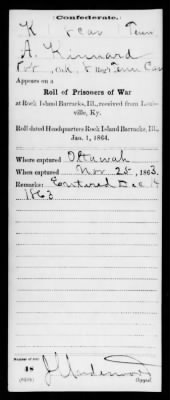 Confederate.
K Cav Tenn.
A. Kinnard
Pvt, Co. K, 8 Reg't Tenn Cav
Appears on a
Roll of Prisoners of War
at Rock Island Barracks, Ill., received from Louis-
ville, Ky.
Roll dated Headquarters Rock Island Barracks, Ill.,
Jan. 1, 1864.
Where captured Ottawah
When captured Nov 25, 1863.
Remarks: Entered Dec
1863
Number of roll:
48
Copyist.